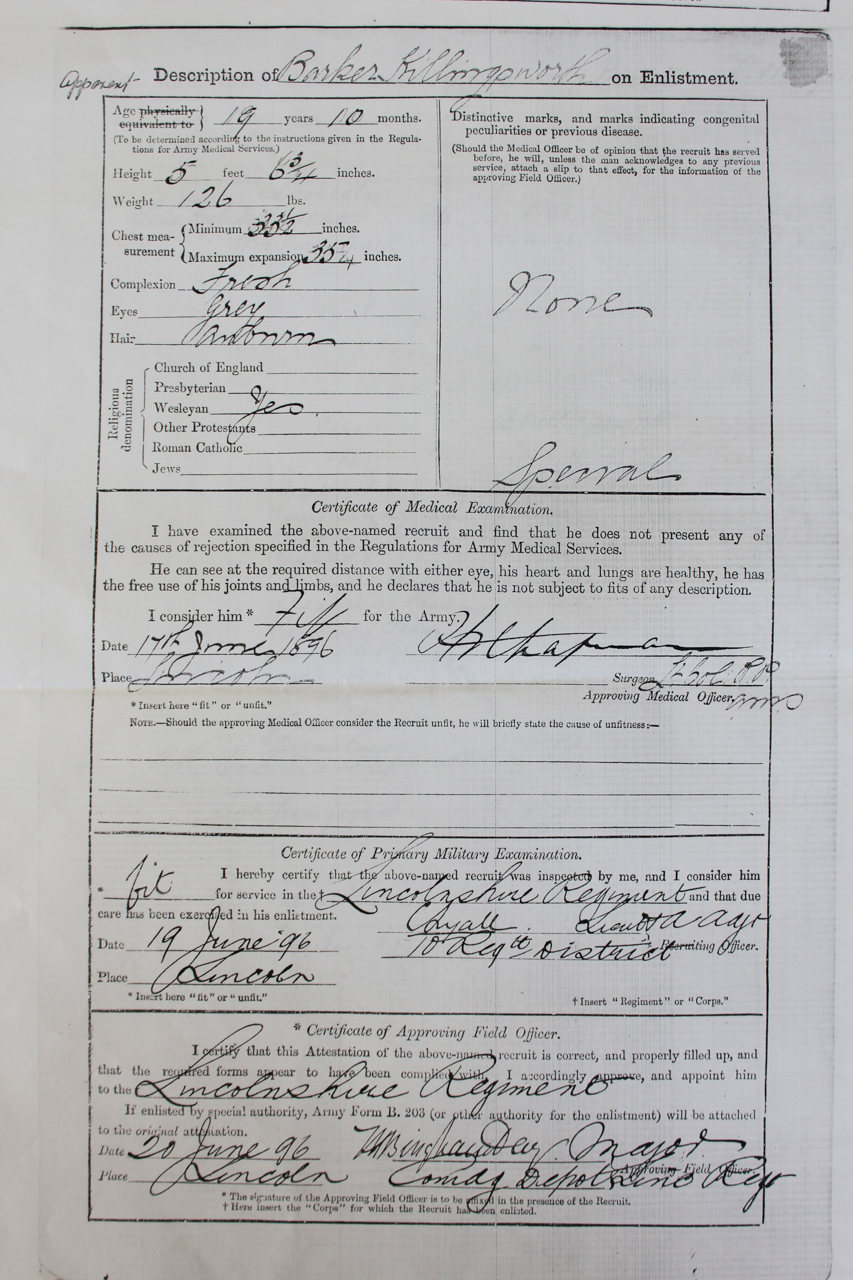 Apparent Description of Barker Killingsworth on Enlistment.
Age physically equivalent to } 19 years 10 months.
(To be determined according to the instructions given in the Regulations for Army Medical Services.)
Height 5 feet 6 3/4 inches.
Weight 126 lbs.
Chest measurement { Minimum 33 1/2 inches.
Maximum expansion 35 inches.
Complexion Fresh
Eyes Grey
Hair Auburn
Religious denomination
Church of England
Presbyterian
Wesleyan Yes.
Other Protestants
Roman Catholic
Jews
Distinctive marks, and marks indicating congenital
peculiarities or previous disease.
(Should the Medical Officer be of opinion that the recruit has served
before, he will, unless the man acknowledges to any previous
service, attach a slip to that effect, for the information of the
approving Field Officer.)
None
Special
Certificate of Medical Examination.
I have examined the above-named recruit and find that he does not present any of
the causes of rejection specified in the Regulations for Army Medical Services.
He can see at the required distance with either eye, his heart and lungs are healthy, he has
the free use of his joints and limbs, and he declares that he is not subject to fits of any description.
I consider him * Fit for the Army.
Date 17th June 1896 Chapman
Place Lincoln Surgeon
Approving Medical Officer.
* Insert here "fit" or "unfit."
NOTE.—Should the approving Medical Officer consider the Recruit unfit, he will briefly state the cause of unfitness:—
Certificate of Primary Military Examination.
I hereby certify that the above-named recruit was inspected by me, and I consider him
* fit for service in the † Lincolnshire Regiment and that due
care has been exercised in his enlistment.
Date 19 June '96 10 Regtl District Recruiting Officer.
Place Lincoln
* Insert here "fit" or "unfit." † Insert "Regiment" or "Corps."
* Certificate of Approving Field Officer.
I certify that this Attestation of the above-named recruit is correct, and properly filled up, and
that the required forms appear to have been complied with, I accordingly approve, and appoint him
to the Lincolnshire Regiment
If enlisted by special authority, Army Form B. 203 (or other authority for the enlistment) will be attached
to the original attestation.
Date 20 June 96 Major
Approving Field Officer.
Place Lincoln Comdg Depot Linc Regt
* The signature of the Approving Field Officer is to be affixed in the presence of the Recruit.
† Here insert the "Corps" for which the Recruit has been enlisted.